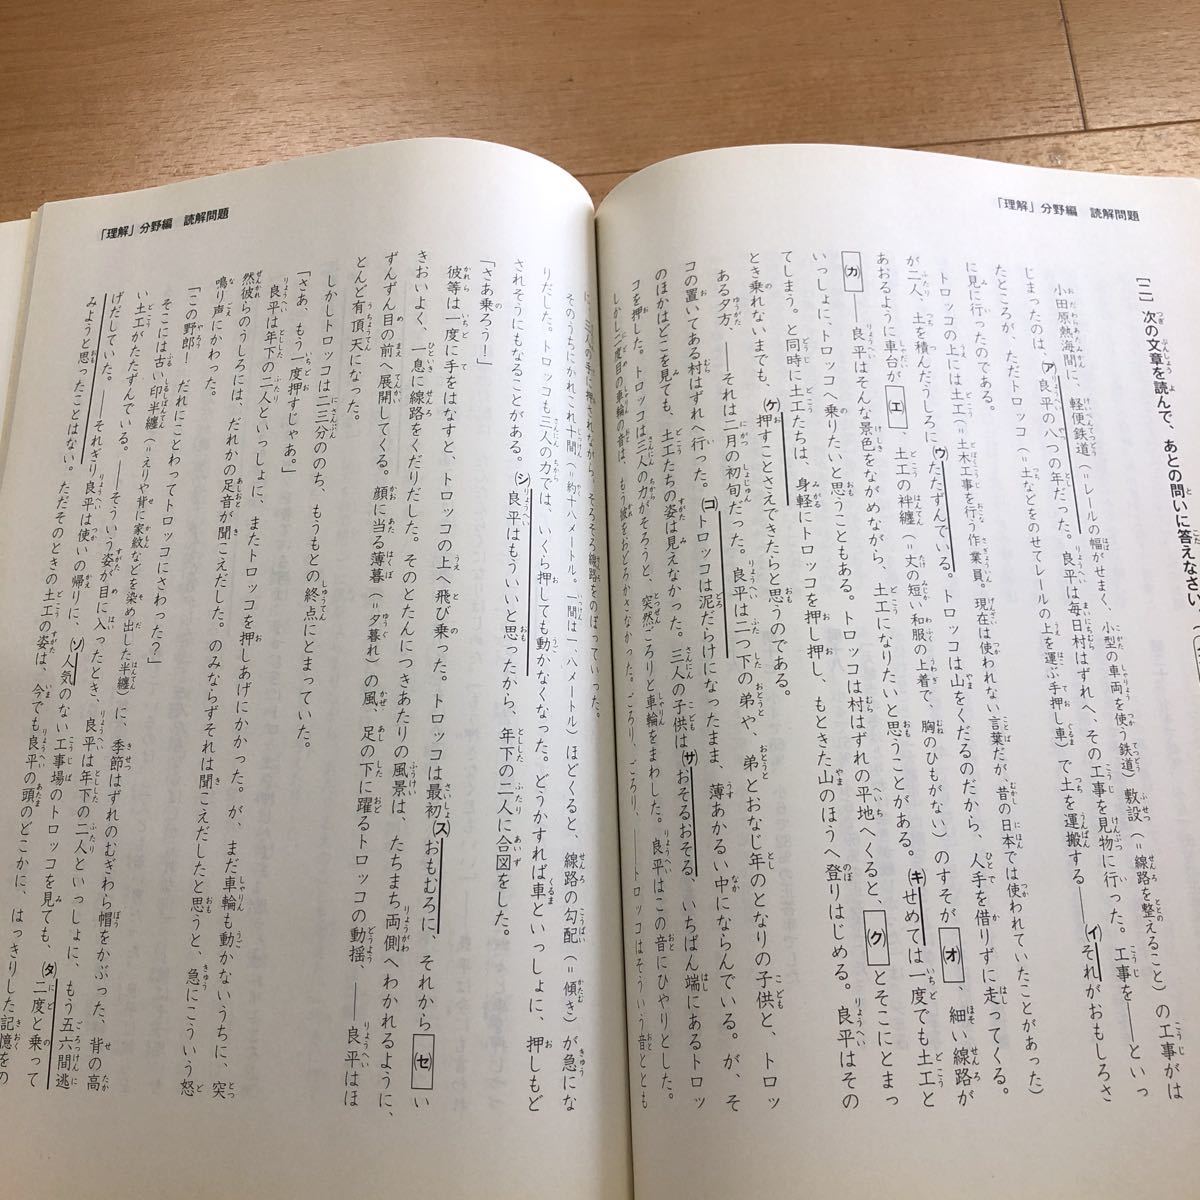 「理解」分野編　読解問題
[二] 次の文章を読んで、あとの問いに答えなさい。
小田原熱海間に、軽便鉄道(=レールの幅がせまく、小型の車両を使う鉄道)敷設(=線路を整えること)の工事がは
じまったのは、(ア)良平の八つの年だった。良平は毎日村はずれへ、その工事を見物に行った。工事を――といっ
たところが、ただトロッコ(=土などをのせてレールの上を運ぶ手押し車)で土を運搬する――(イ)それがおもしろさ
に見に行ったのである。
トロッコの上には土工(=土木工事を行う作業員。現在は使われない言葉だが、昔の日本では使われていたことがあった)
が二人、土を積んだうしろに(ウ)たたずんでいる。トロッコは山をくだるのだから、人手を借りずに走ってくる。
あおるように車台が(エ)、土工の袢纏(=丈の短い和服の上着で、胸のひもがない)のすそが(オ)、細い線路が
(カ)――良平はそんな景色をながめながら、土工になりたいと思うことがある。(キ)せめては一度でも土工と
いっしょに、トロッコへ乗りたいと思うこともある。トロッコは村はずれの平地へくると、(ク)とそこにとまっ
てしまう。と同時に土工たちは、身軽にトロッコを押し押し、もときた山のほうへ登りはじめる。良平はその
とき乗れないまでも、(ケ)押すことさえできたらと思うのである。
ある夕方、――それは二月の初旬だった。良平は二つ下の弟や、弟とおなじ年のとなりの子供と、トロッ
コの置いてある村はずれへ行った。(コ)トロッコは泥だらけになったまま、薄あかるい中にならんでいる。が、そ
のほかはどこを見ても、土工たちの姿は見えなかった。三人の子供は(サ)おそるおそる、いちばん端にあるトロッ
コを押した。トロッコは三人の力がそろうと、突然ごろりと車輪をまわした。良平はこの音にひやりとした。
しかし二度目の車輪の音は、もう彼をおどろかさなかった。ごろり、ごろり、――トロッコはそういう音ととも
「理解」分野編　読解問題
に、三人の手に押されながら、そろそろ線路をのぼっていった。
そのうちにかれこれ十間(=約十八メートル。一間は一、八メートル)ほどくると、線路の勾配(=傾き)が急にな
りだした。トロッコも三人の力では、いくら押しても動かなくなった。どうかすれば車といっしょに、押しもど
されそうにもなることがある。(シ)良平はもういいと思ったから、年下の二人に合図をした。
「さあ乗ろう！」
彼等は一度に手をはなすと、トロッコの上へ飛び乗った。トロッコは最初(ス)おもむろに、それから(セ)い
きおいよく、一息に線路をくだりだした。そのとたんにつきあたりの風景は、たちまち両側へわかれるように、
ずんずん目の前へ展開してくる。顔に当る薄暮(=夕暮れ)の風、足の下に躍るトロッコの動揺、――良平はほ
とんど有頂天になった。
しかしトロッコは二三分ののち、もうもとの終点にとまっていた。
「さあ、もう一度押すじゃあ。」
良平は年下の二人といっしょに、またトロッコを押しあげにかかった。が、まだ車輪も動かないうちに、突
然彼らのうしろには、だれかの足音が聞こえだした。のみならずそれは聞こえだしたと思うと、急にこういう怒
鳴り声にかわった。
「この野郎！　だれにことわってトロッコにさわった？」
そこには古い印半纏(=えりや背に家紋などを染め出した半纏)に、季節はずれのむぎわら帽をかぶった、背の高
い土工がたたずんでいる。――そういう姿が目に入ったとき、良平は年下の二人といっしょに、もう五六間逃
げだしていた。――それぎり良平は使いの帰りに、(ソ)人気のない工事場のトロッコを見ても、(タ)二度と乗って
みようと思ったことはない。ただそのときの土工の姿は、今でも良平の頭のどこかに、はっきりした記憶をの